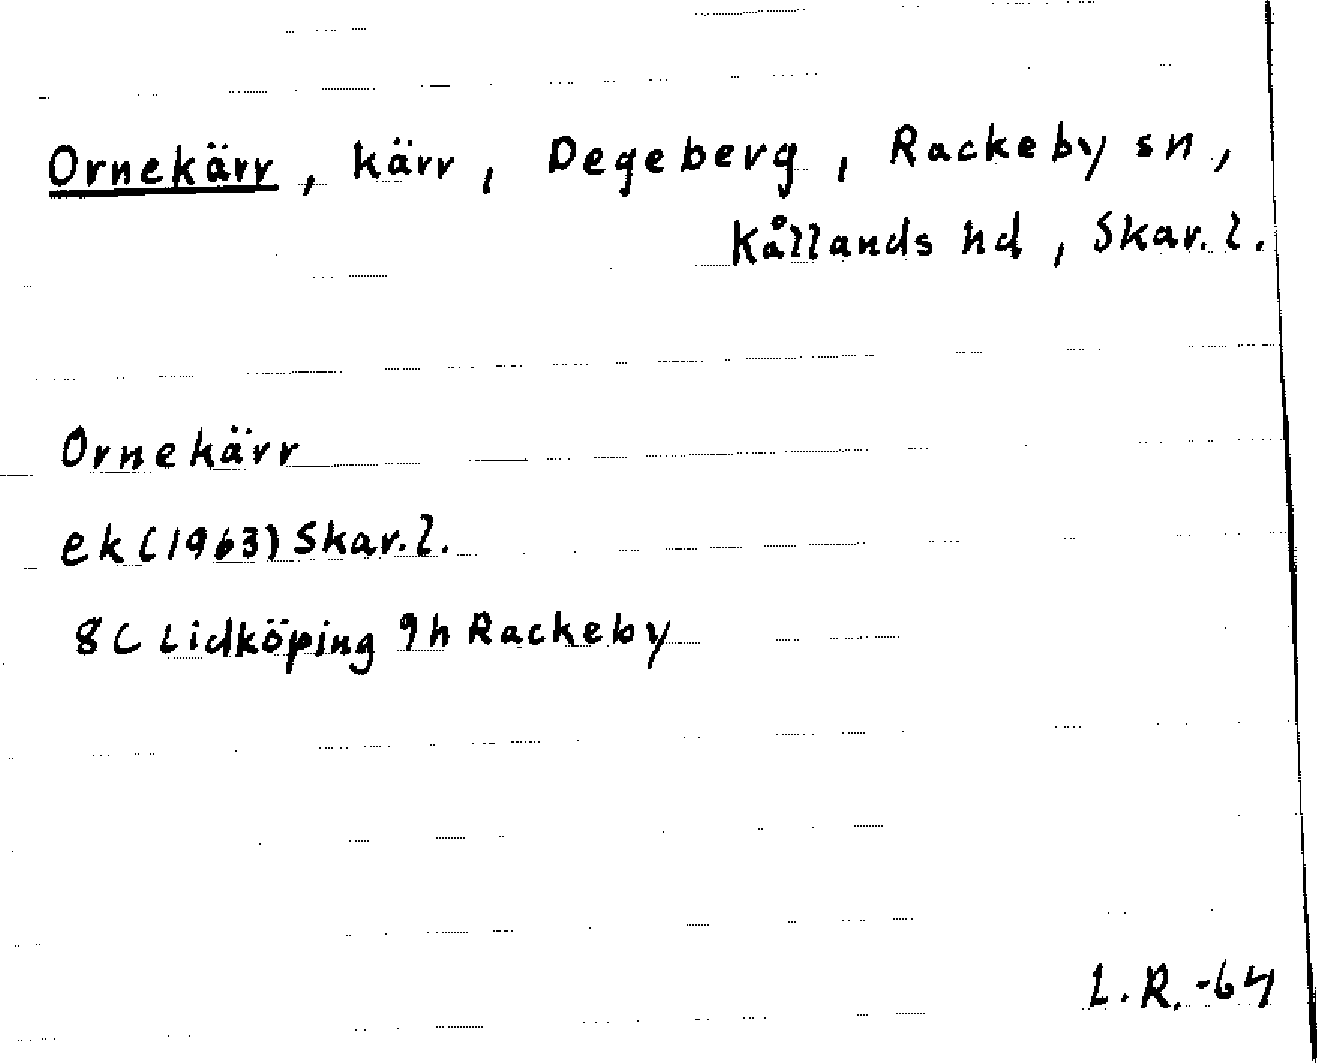 Ornekärr, kärr, Degeberg, Rackeby sn,
Kållands hd, Skar. l.
Ornekärr
ek (1963) Skar. l.
8C Lidköping 9h Rackeby
L. R. -64